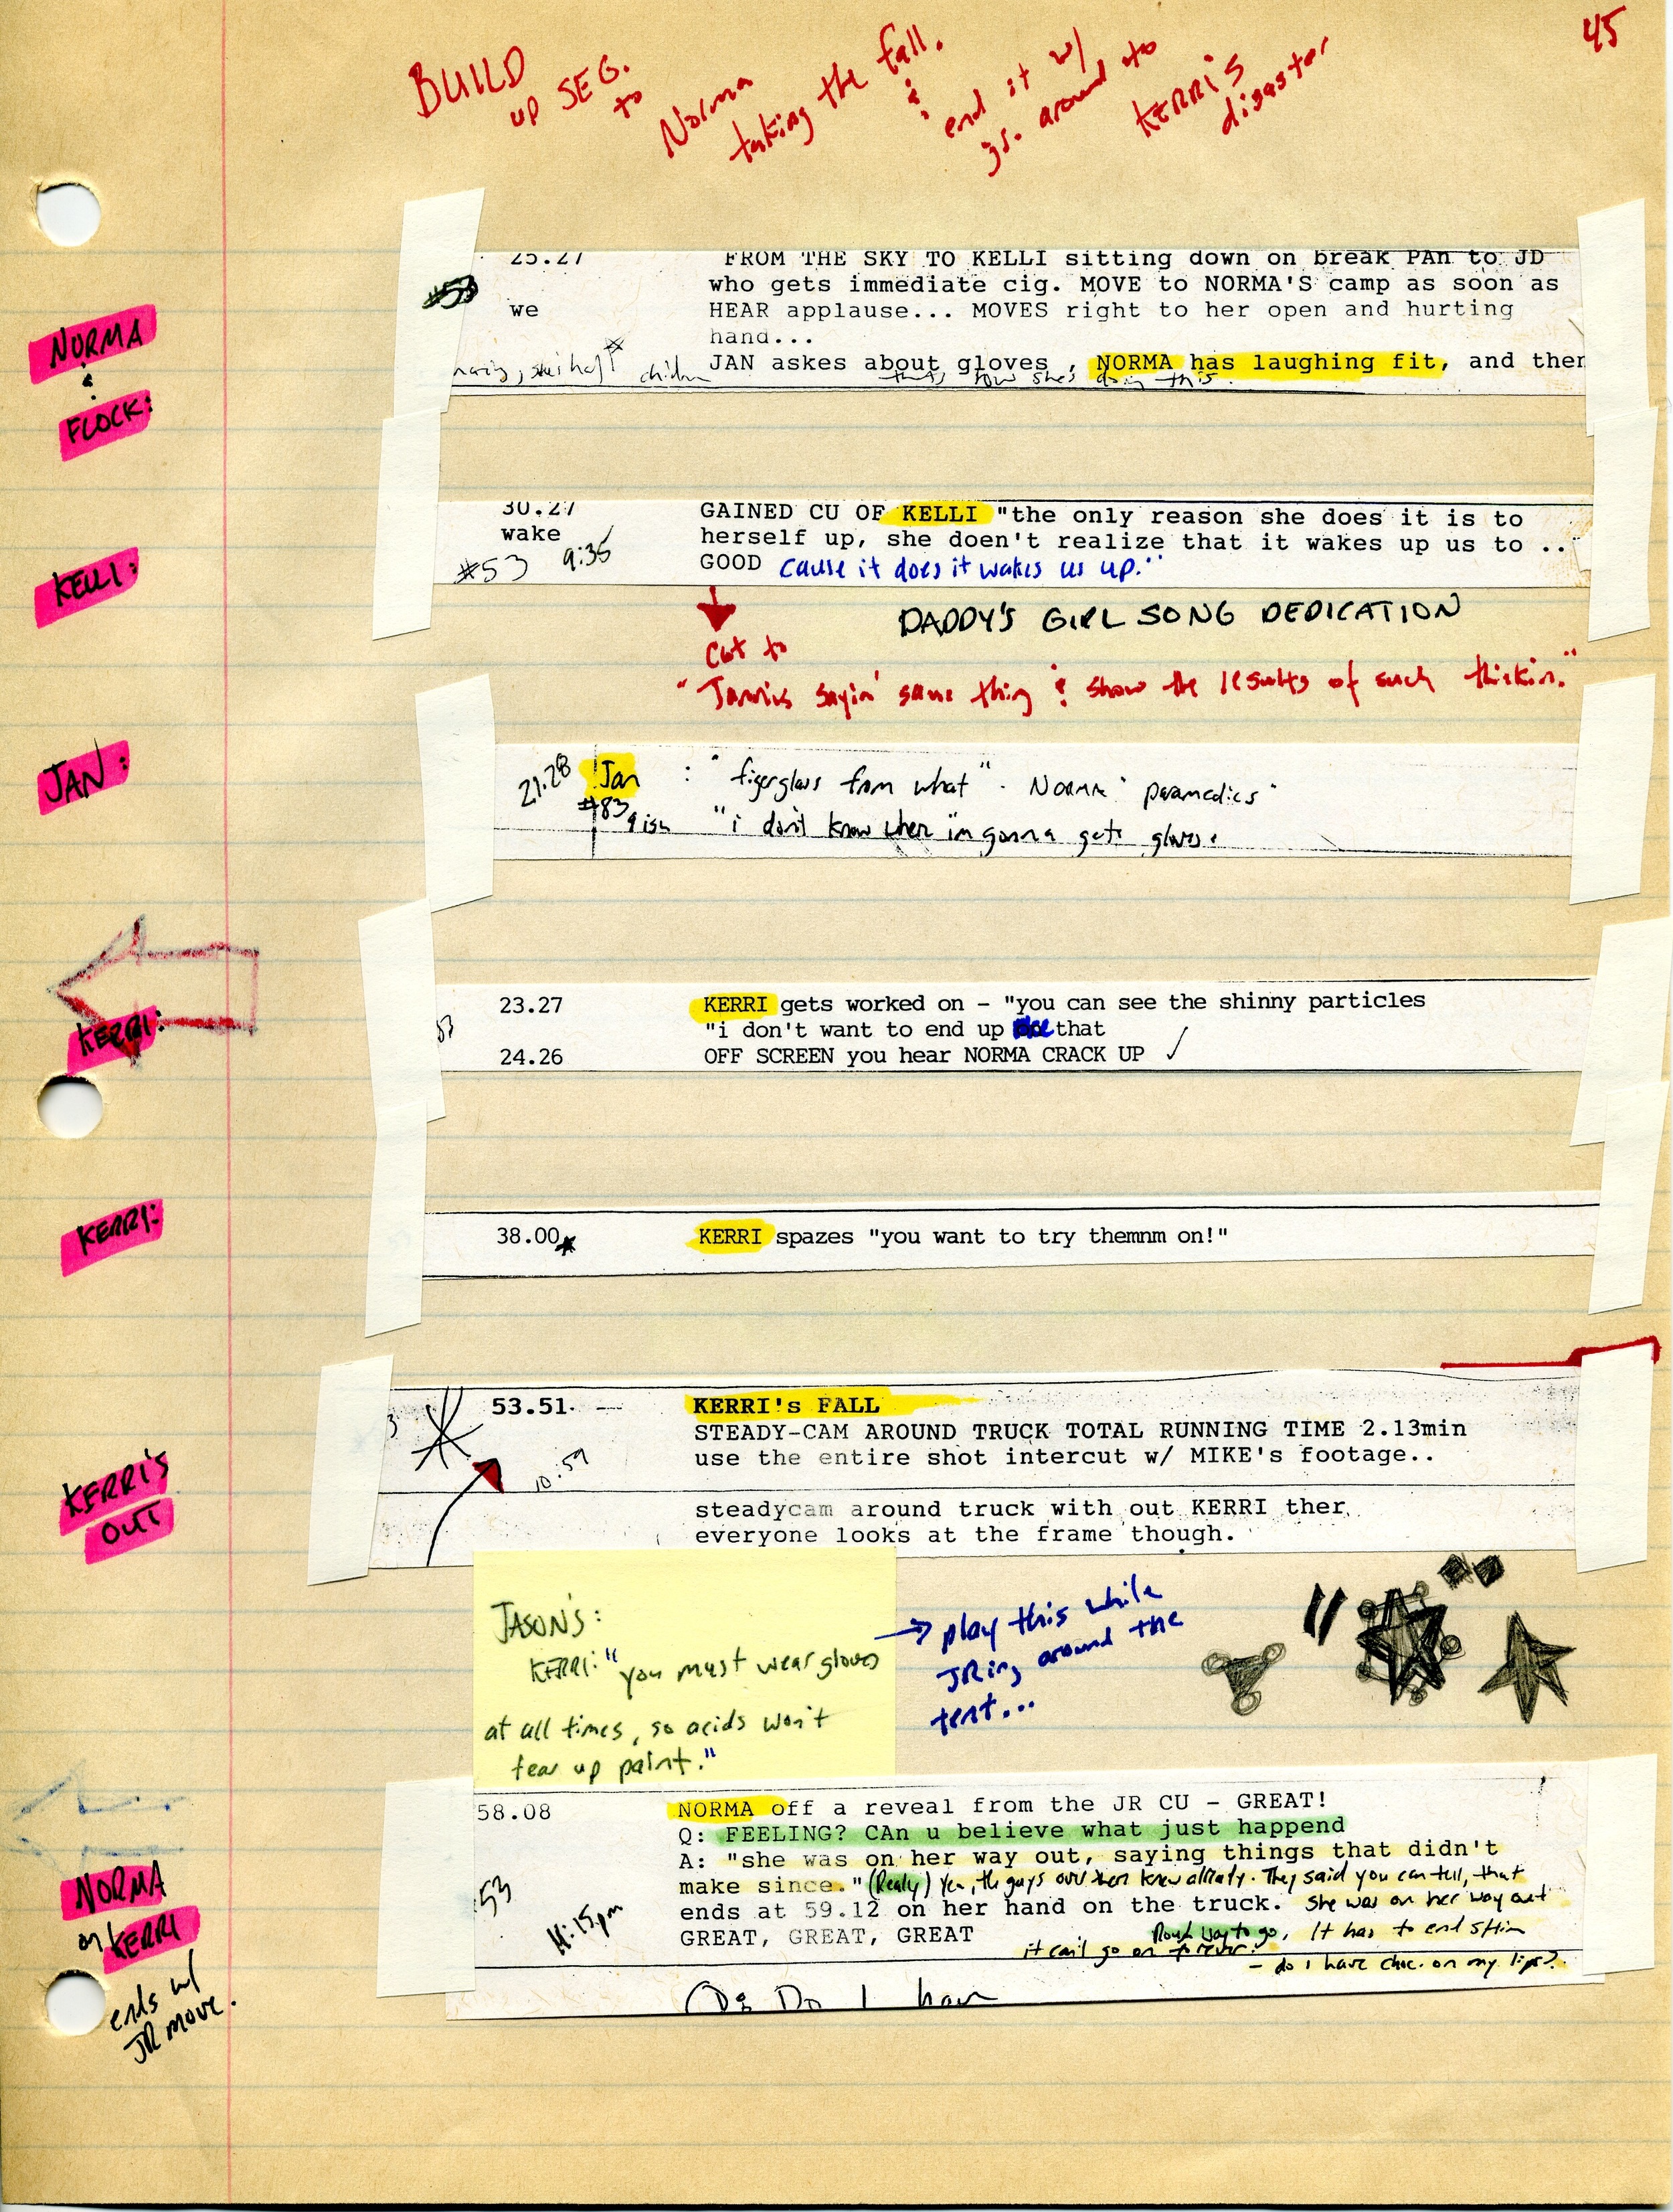 45
BUILD
up SEG.
to
Norma
taking the fall.
&
end it w/
jr. around to
KERRi'S
disaster
NORMA
&
FLOCK:
25.27 FROM THE SKY TO KELLI sitting down on break PAn to JD
#53 who gets immediate cig. MOVE to NORMA'S camp as soon as
we HEAR applause... MOVES right to her open and hurting
hand...
JAN askes about gloves , NORMA has laughing fit, and then
that's how she's doing this.
KELLI:
30.27 GAINED CU OF KELLI "the only reason she does it is to
wake herself up, she doen't realize that it wakes up us to .."
#53 9:35 GOOD cause it does it wakes us up."
DADDY'S GIRL SONG DEDICATION
Cut to
"Jannis sayin' same thing & show the results of such thinkin."
JAN:
21.28 Jan : "figerglass from what" - NORMA "paramedics"
#83 9ish "i don't know wher i'm gonna gets gloves.
KERRI:
23.27 KERRI gets worked on - "you can see the shinny particles
53 "i don't want to end up like that
24.26 OFF SCREEN you hear NORMA CRACK UP ✓
KERRI:
38.00 KERRI spazes "you want to try themnm on!"
KERRI'S
OUT
53.51 — KERRI's FALL
STEADY-CAM AROUND TRUCK TOTAL RUNNING TIME 2.13min
10:59 use the entire shot intercut w/ MIKE's footage..
steadycam around truck with out KERRI ther
everyone looks at the frame though.
JASON'S:
KERRI: "you must wear gloves
at all times, so acids won't
tear up paint."
→ play this while
JRing around the
tent...
NORMA
on KERRI
ends w/
JR move.
58.08 NORMA off a reveal from the JR CU - GREAT!
Q: FEELING? CAn u believe what just happend
A: "she was on her way out, saying things that didn't
53 make since." (Realy) Yea, the guys over there knew allready. They said you can tell, that
11:15pm ends at 59.12 on her hand on the truck. She was on her way out
GREAT, GREAT, GREAT Rough way to go, It has to end s+im
it can't go on forever.
- do I have choc. on my lips?
Do I have